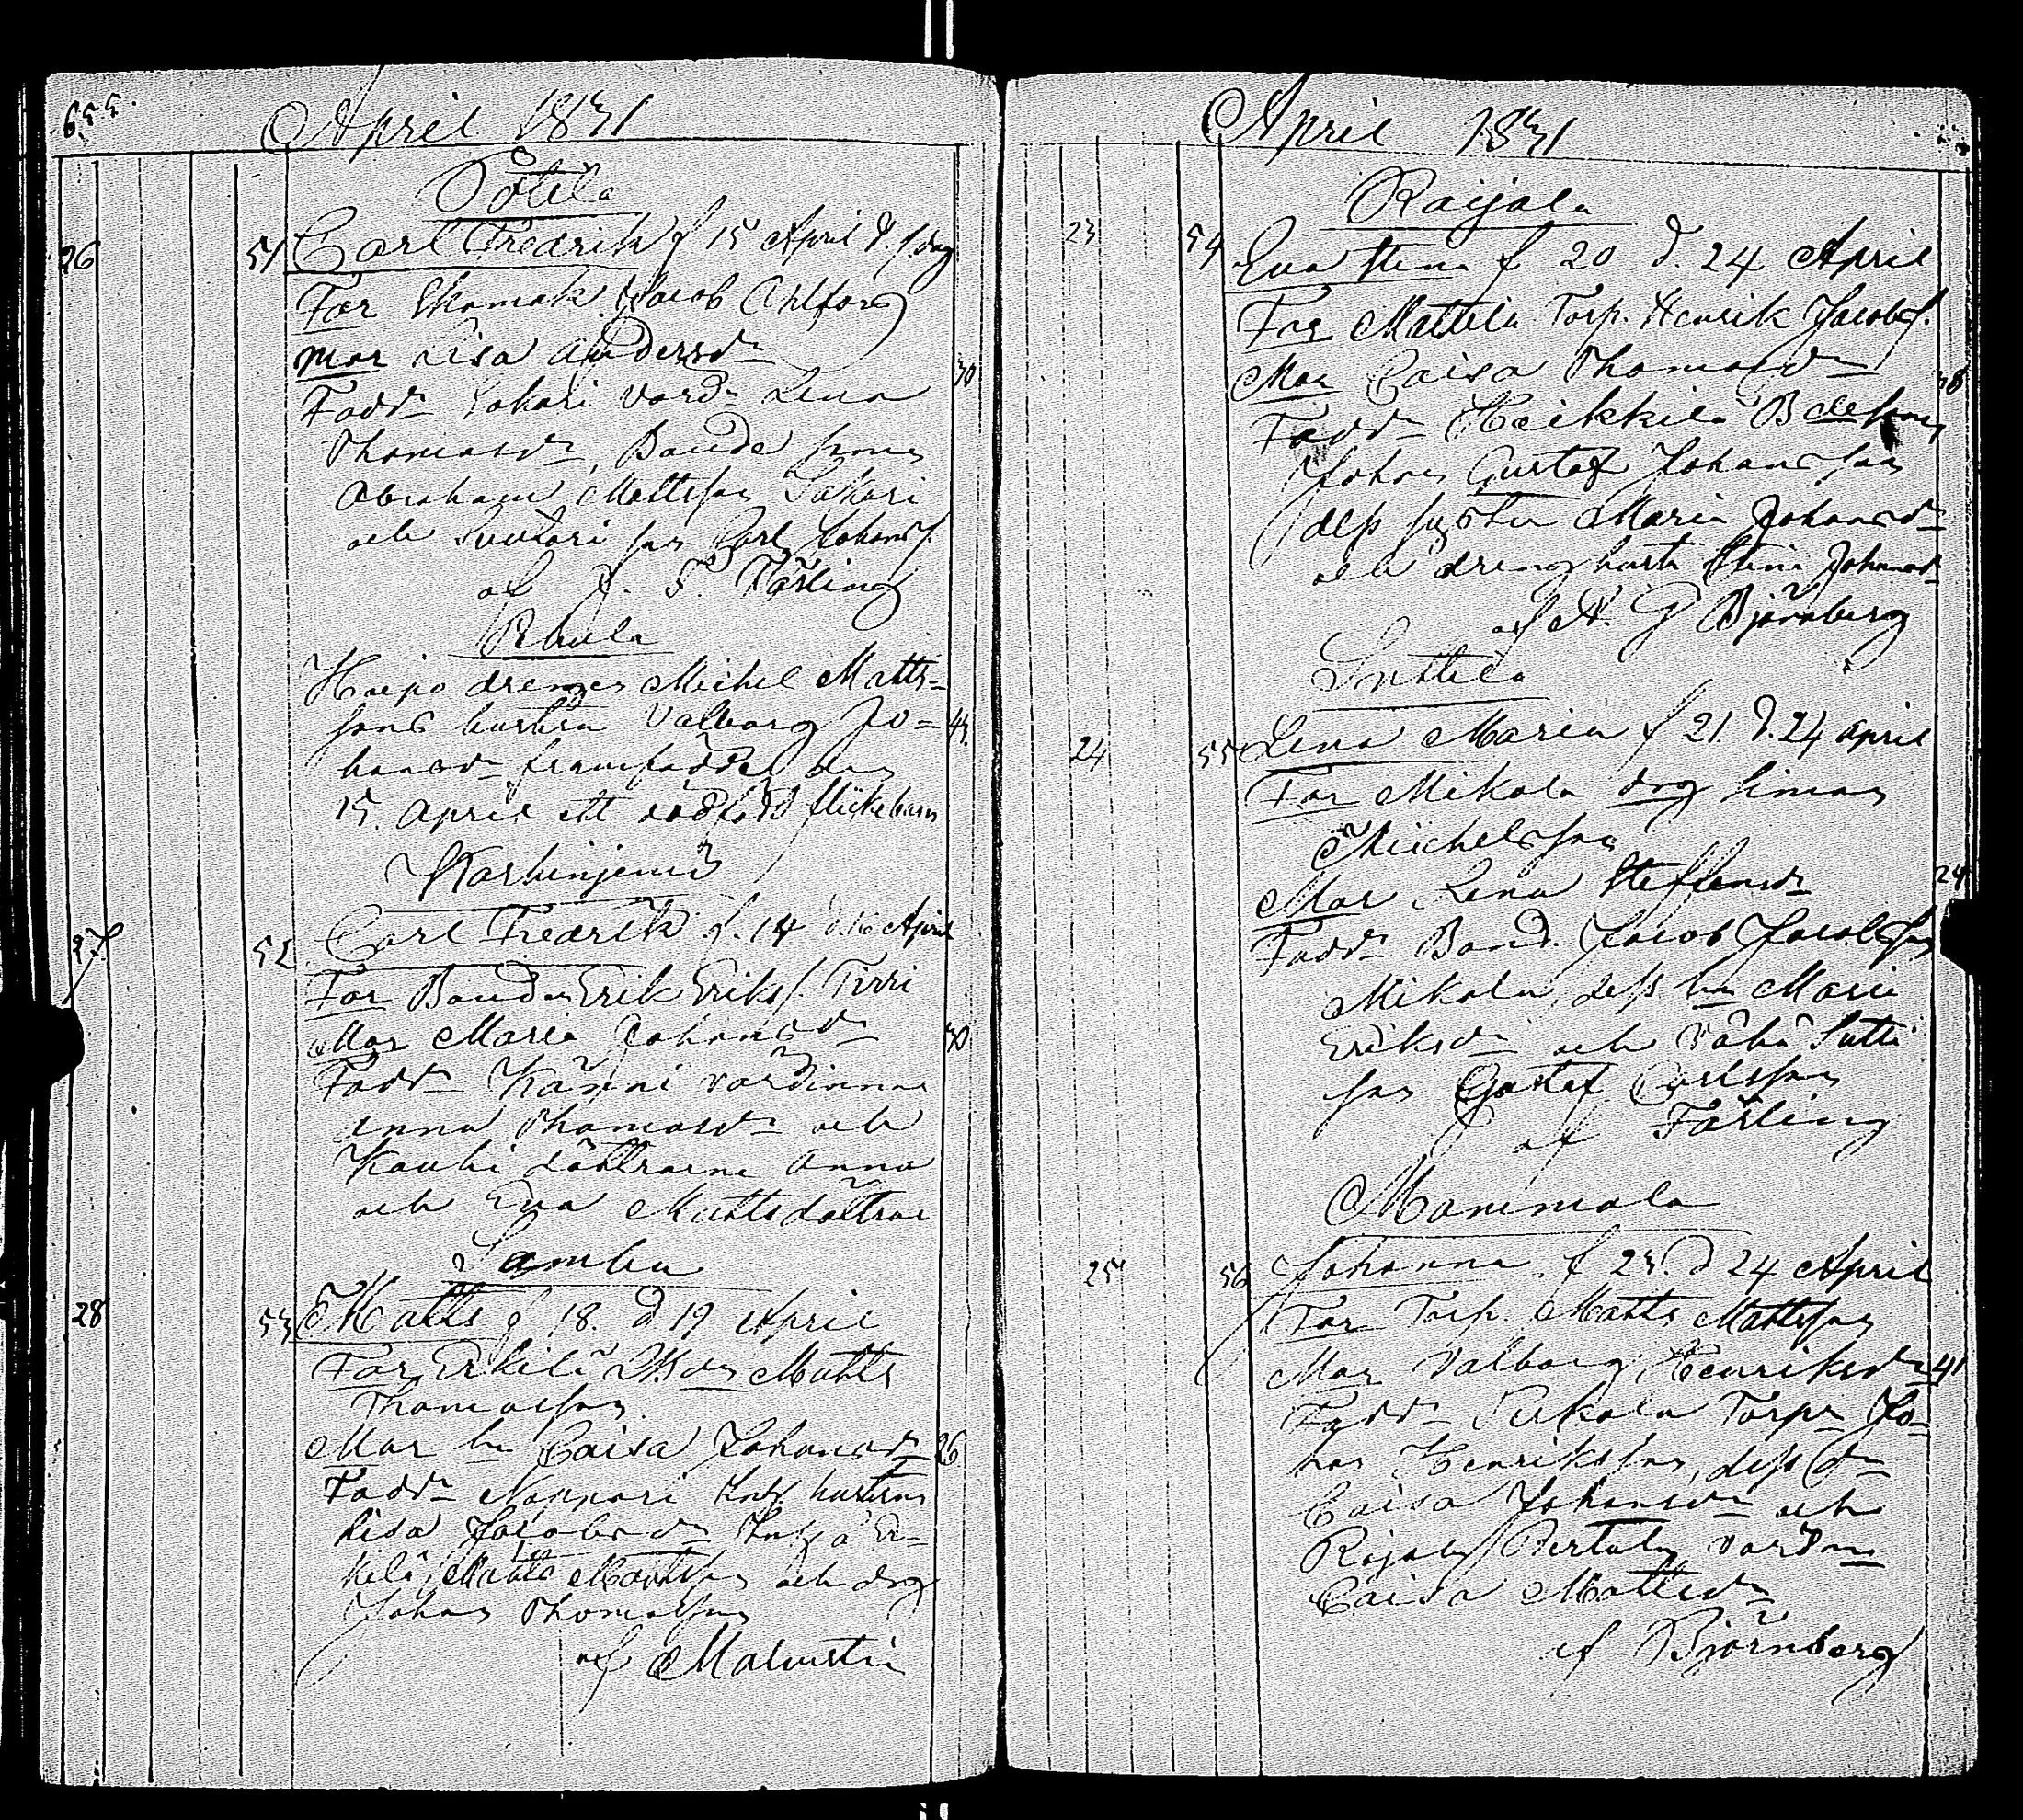 655.
April 1831
Potila
26 51 Carl Fredrik f 15 April d. s. dag
Far Skomak. Jacob Ahlfors
Mor Lisa Andersdr
30
Faddr Sakari värd: Lena
Thomasdr, Bonde sonen
Abraham Mattsson Sakari
och Suutari son Carl Johans.
af J. F. Färling
Peuula
Haapo drengen Michel Matts-
sons hustru Valborg Jo- 43.
hansdr framfödde den
15. April ett dödfödt flickebarn
Karhiniemi
27. 52 Carl Fredrik f. 14 d. 16 April
Far Bonden Erik Eriks. Tirri
Mor Maria Johansdr 30
Faddr Känni värdinnan
Anna Thomasdr och
Kauhi döttrarne Anna
och Eva Mattsdöttrar
Sambu
28 53 Matts f 18. d 19 April
Far Erkilä Matts
Thomasson
Mor hu Caisa Johansdr 26
Faddr Nappari hustrun
Lisa Jacobsdr å Er-
kilä Matts Mattsson och drg
Johan Thomasson
af Malmstén
April 1831
Raijala
23 54 Eva Stina f 20 d. 24 April
Far Mattila Torp. Henrik Jacobs.
Mor Caisa Thomasdr 38
Faddr Heikkilä Bdesonen
Johan Gustaf Johansson
dess syster Maria Johansdr
och drenghust. Stina Johansdr
af A. G Björnberg
Suttila
24 55 Lena Maria f 21. d. 24 April
Far Mikola drg Simon
Michelsson
Mor Lena Steffansdr 24
Faddr Bond. Jacob Jacobsson
Mikola, dess hu Maria
Eriksdr och Vähä Sutti
son Gustaf Carlsson
af Färling
Mommola
25 56 Johanna f 23. d 24 April
Far Torp. Matts Mattsson
Mor Valborg Henriksdr 41
Faddr Perkola Torpn Jo-
han Henriksson, dess dr
Caisa Johansdr och
Rajala Pertola värdna
Caisa Mattsdr
af Björnberg